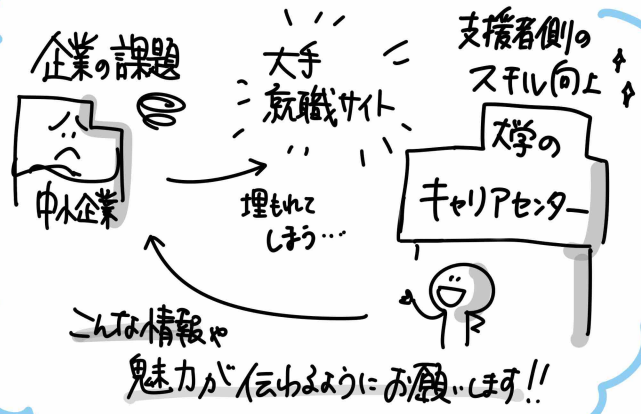 企業の課題
中小企業
大手
就職サイト
埋もれて
しまう…
支援者側の
スキル向上
大学の
キャリアセンター
こんな情報や
魅力が伝わるようにお願いします!!